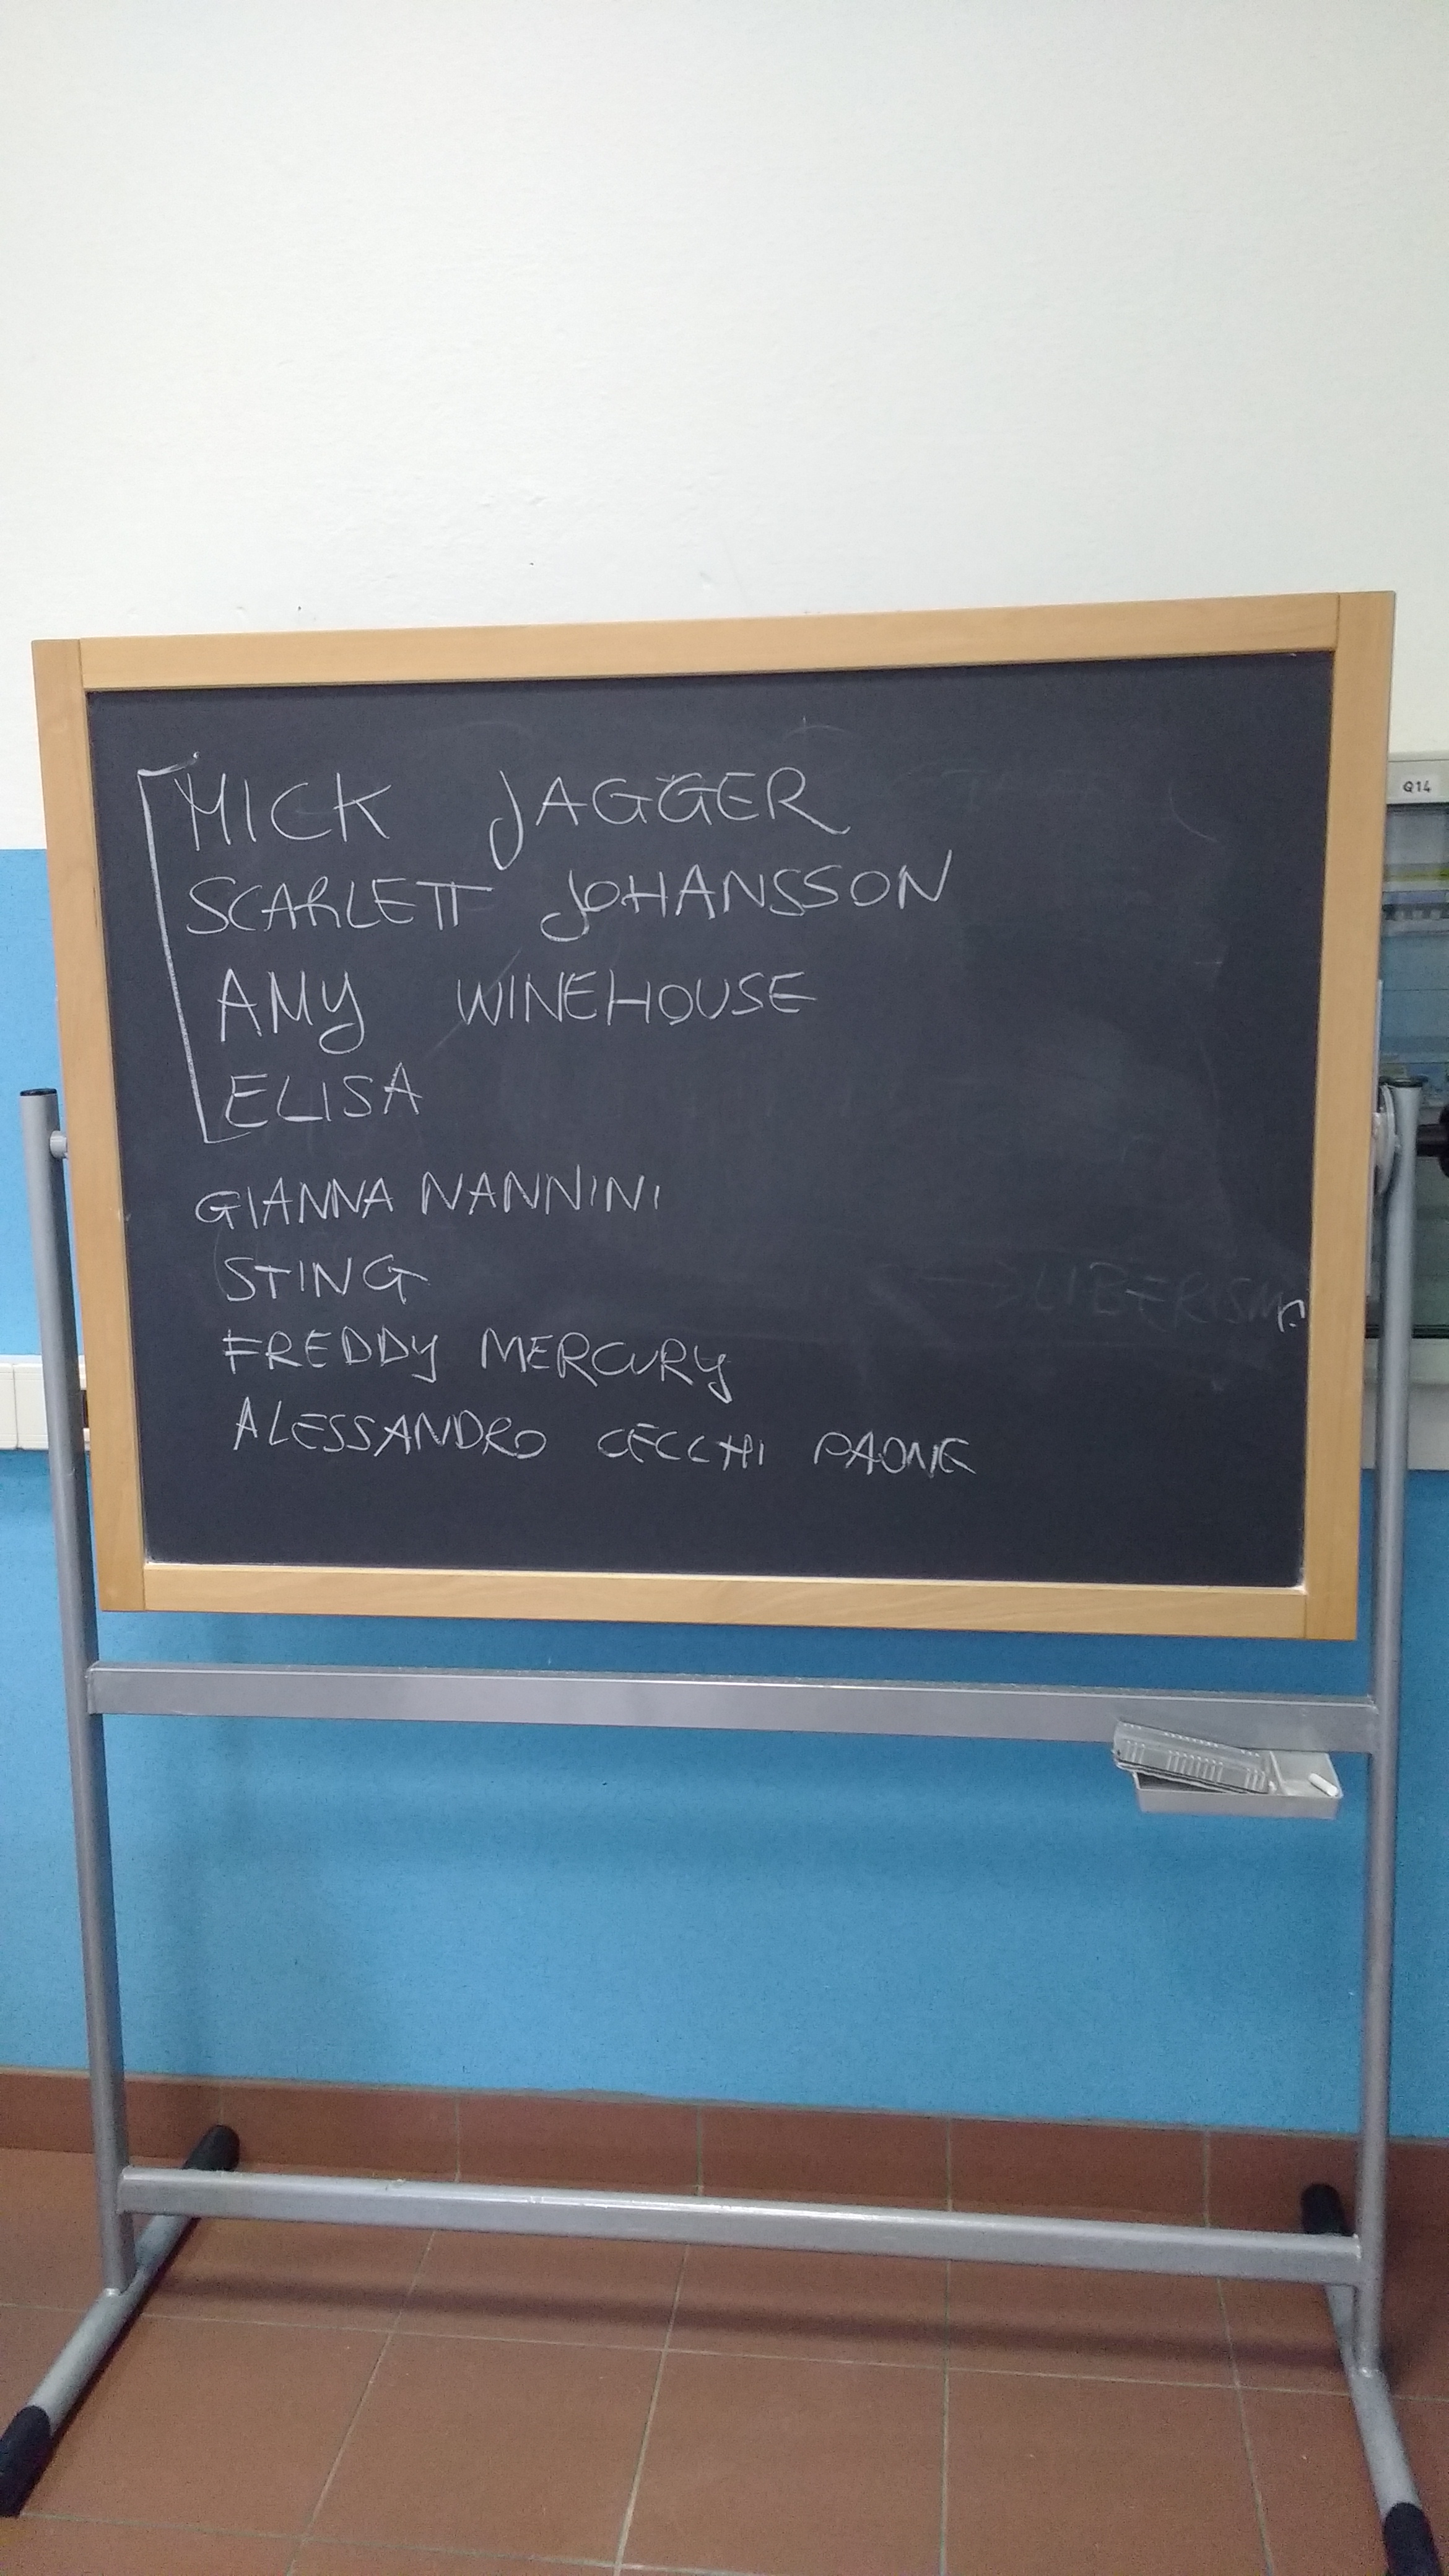 MICK JAGGER
SCARLETT JOHANSSON
AMY WINEHOUSE
ELISA
GIANNA NANNINI
STING
→ LIBERISMO
FREDDY MERCURY
ALESSANDRO CECCHI PAONE
Q14